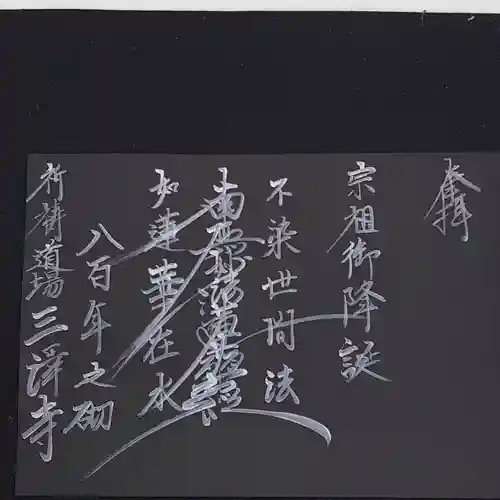 奉拝
宗祖御降誕
不染世間法
南無妙法蓮華経
如蓮華在水
八百年之砌
祈祷道場三澤寺